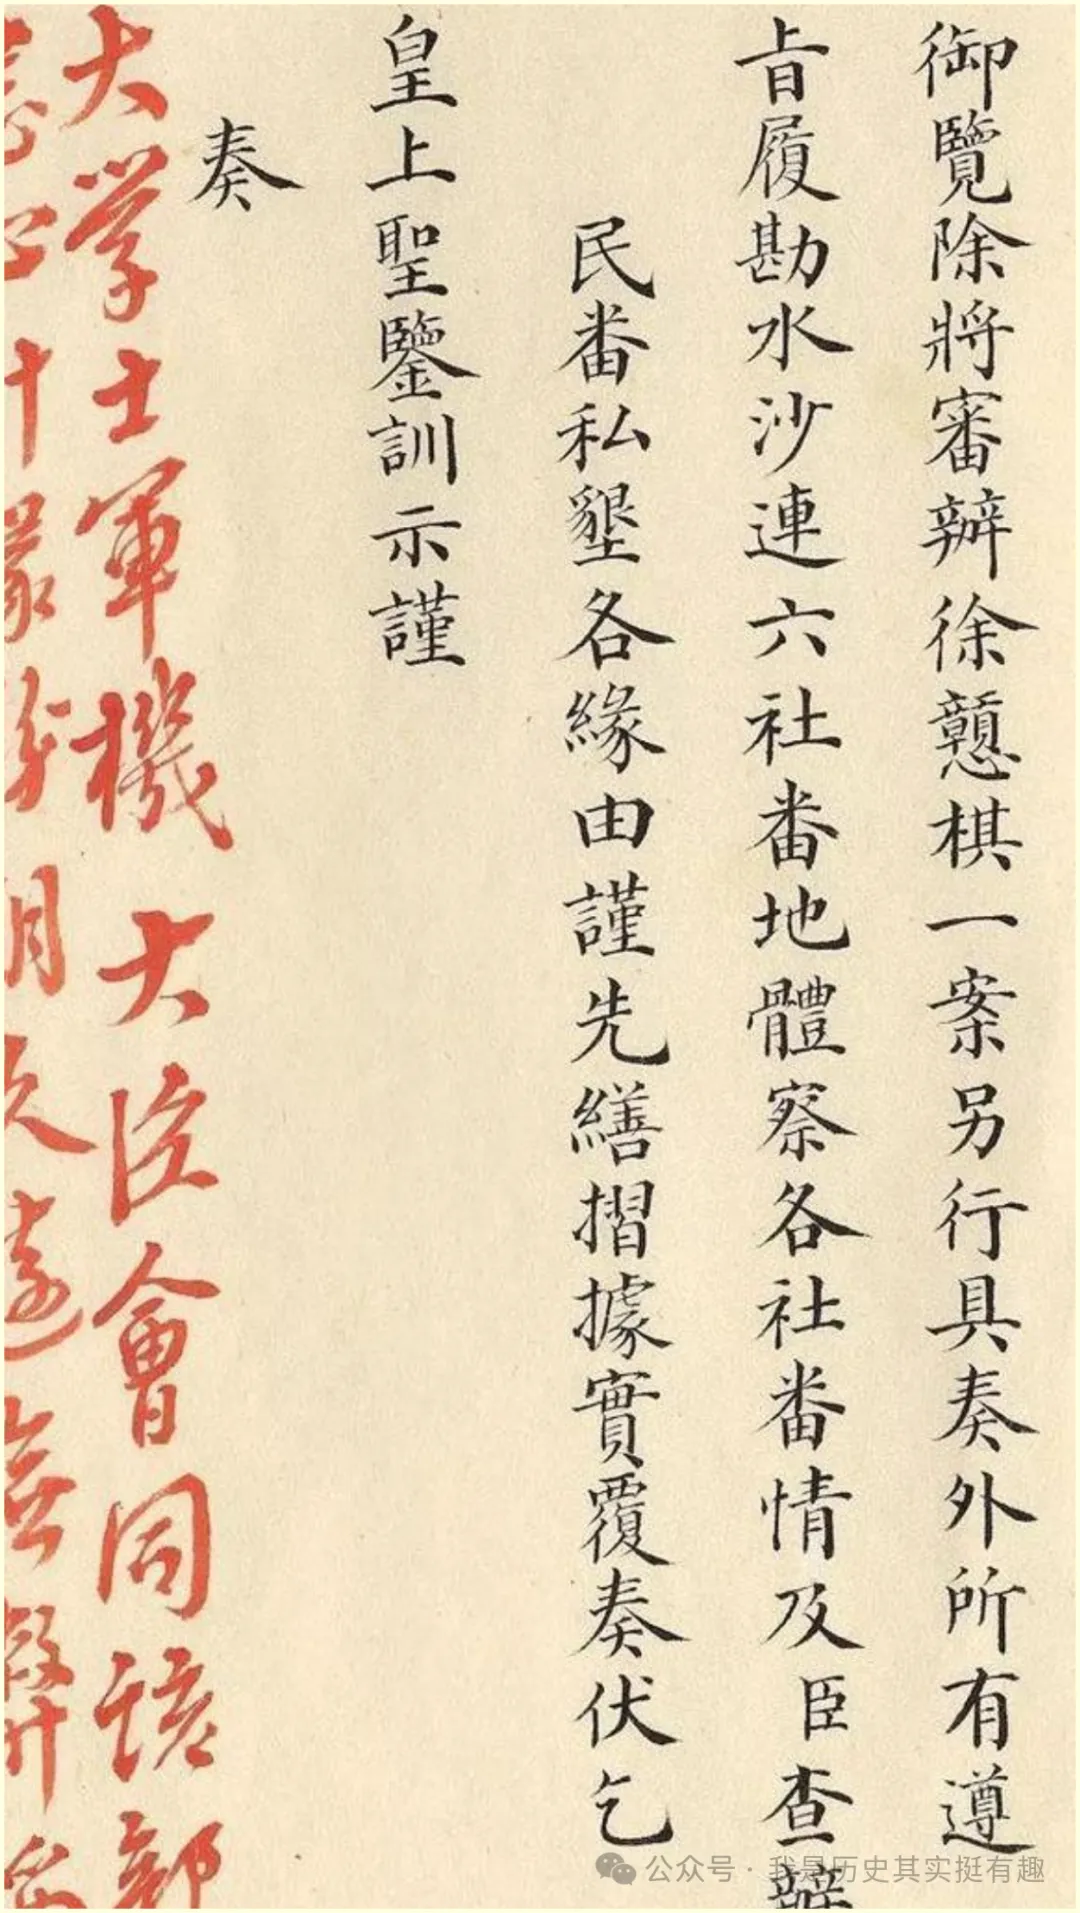 御覽除將審辦徐戇棋一案另行具奏外所有遵
旨履勘水沙連六社番地體察各社番情及臣查辦
民番私墾各緣由謹先繕摺據實覆奏伏乞
皇上聖鑒訓示謹
奏
大學士軍機大臣會同該部
公众号·我是历史其实挺有趣